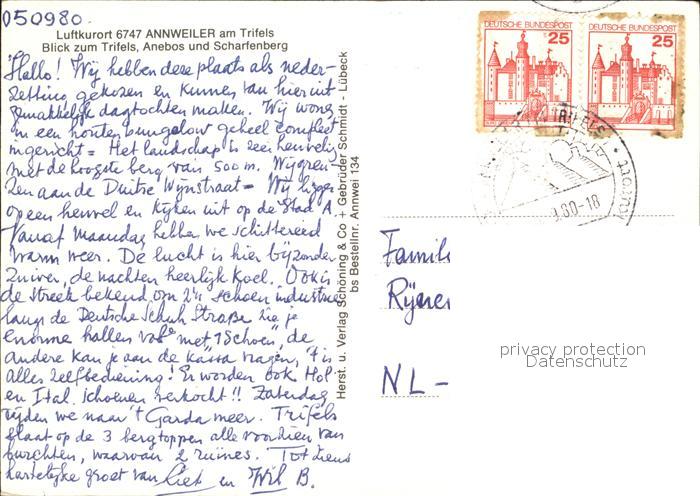 050980
Luftkurort 6747 ANNWEILER am Trifels
Blick zum Trifels, Anebos und Scharfenberg
Hallo! Wij hebben deze plaats als neder-
zetting gekozen en kunnen van hier uit
gemakkelijk dagtochten maken. Wij wonen
in een houten bungalow geheel compleet
ingericht = Het landschap is zeer heuvelig
met de hoogste berg van 500 m. Wij gren-
zen aan de Duitse Wijnstraat = Wij liggen
op een heuvel en kijken uit op de Stad A.
Vanaf Maandag hebben we schitterend
warm weer. De lucht is hier bijzonder
zuiver, de nachten heerlijk koel. Ook is
de streek bekend om z'n schoen industrie
langs de Deutsche Schuh Straße zie je
enorme hallen vol met "1 Schoen", de
andere kan je aan de kassa vragen, 't is
alles zelfbediening! Er worden ook Hol
en Ital. schoenen verkocht!! Zaterdag
rijden we naar 't Gardameer. Trifels
slaat op de 3 bergtoppen alle voorzien van
burchten, waarvan 2 ruines. Tot ziens
hartelijke groet van Liet en Wil B.
Herst. u. Verlag Schöning & Co + Gebrüder Schmidt - Lübeck
bs Bestellnr. Annwei 134
DEUTSCHE BUNDESPOST
25
DEUTSCHE BUNDESPOST
25
TRIFELS
9.80-18
Luftkurort
Famili
NL-
privacy protection
Datenschutz